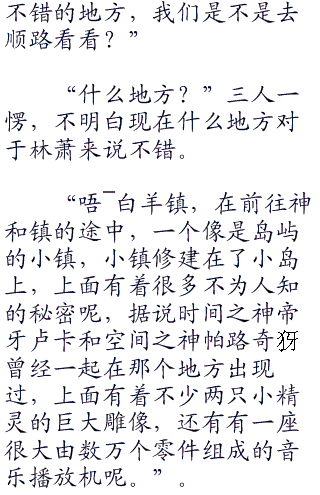 不错的地方，我们是不是去
顺路看看？”
“什么地方？”三人一
愣，不明白现在什么地方对
于林萧来说不错。
“唔¯白羊镇，在前往神
和镇的途中，一个像是岛屿
的小镇，小镇修建在了小岛
上，上面有着很多不为人知
的秘密呢，据说时间之神帝
牙卢卡和空间之神帕路奇犽
曾经一起在那个地方出现
过，上面有着不少两只小精
灵的巨大雕像，还有有一座
很大由数万个零件组成的音
乐播放机呢。”。